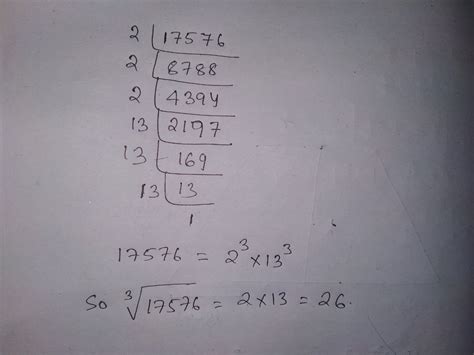 2 | 17576
2 | 8788
2 | 4394
13 | 2197
13 | 169
13 | 13
1
17576 = 2³ × 13³
So ∛17576 = 2 × 13 = 26.